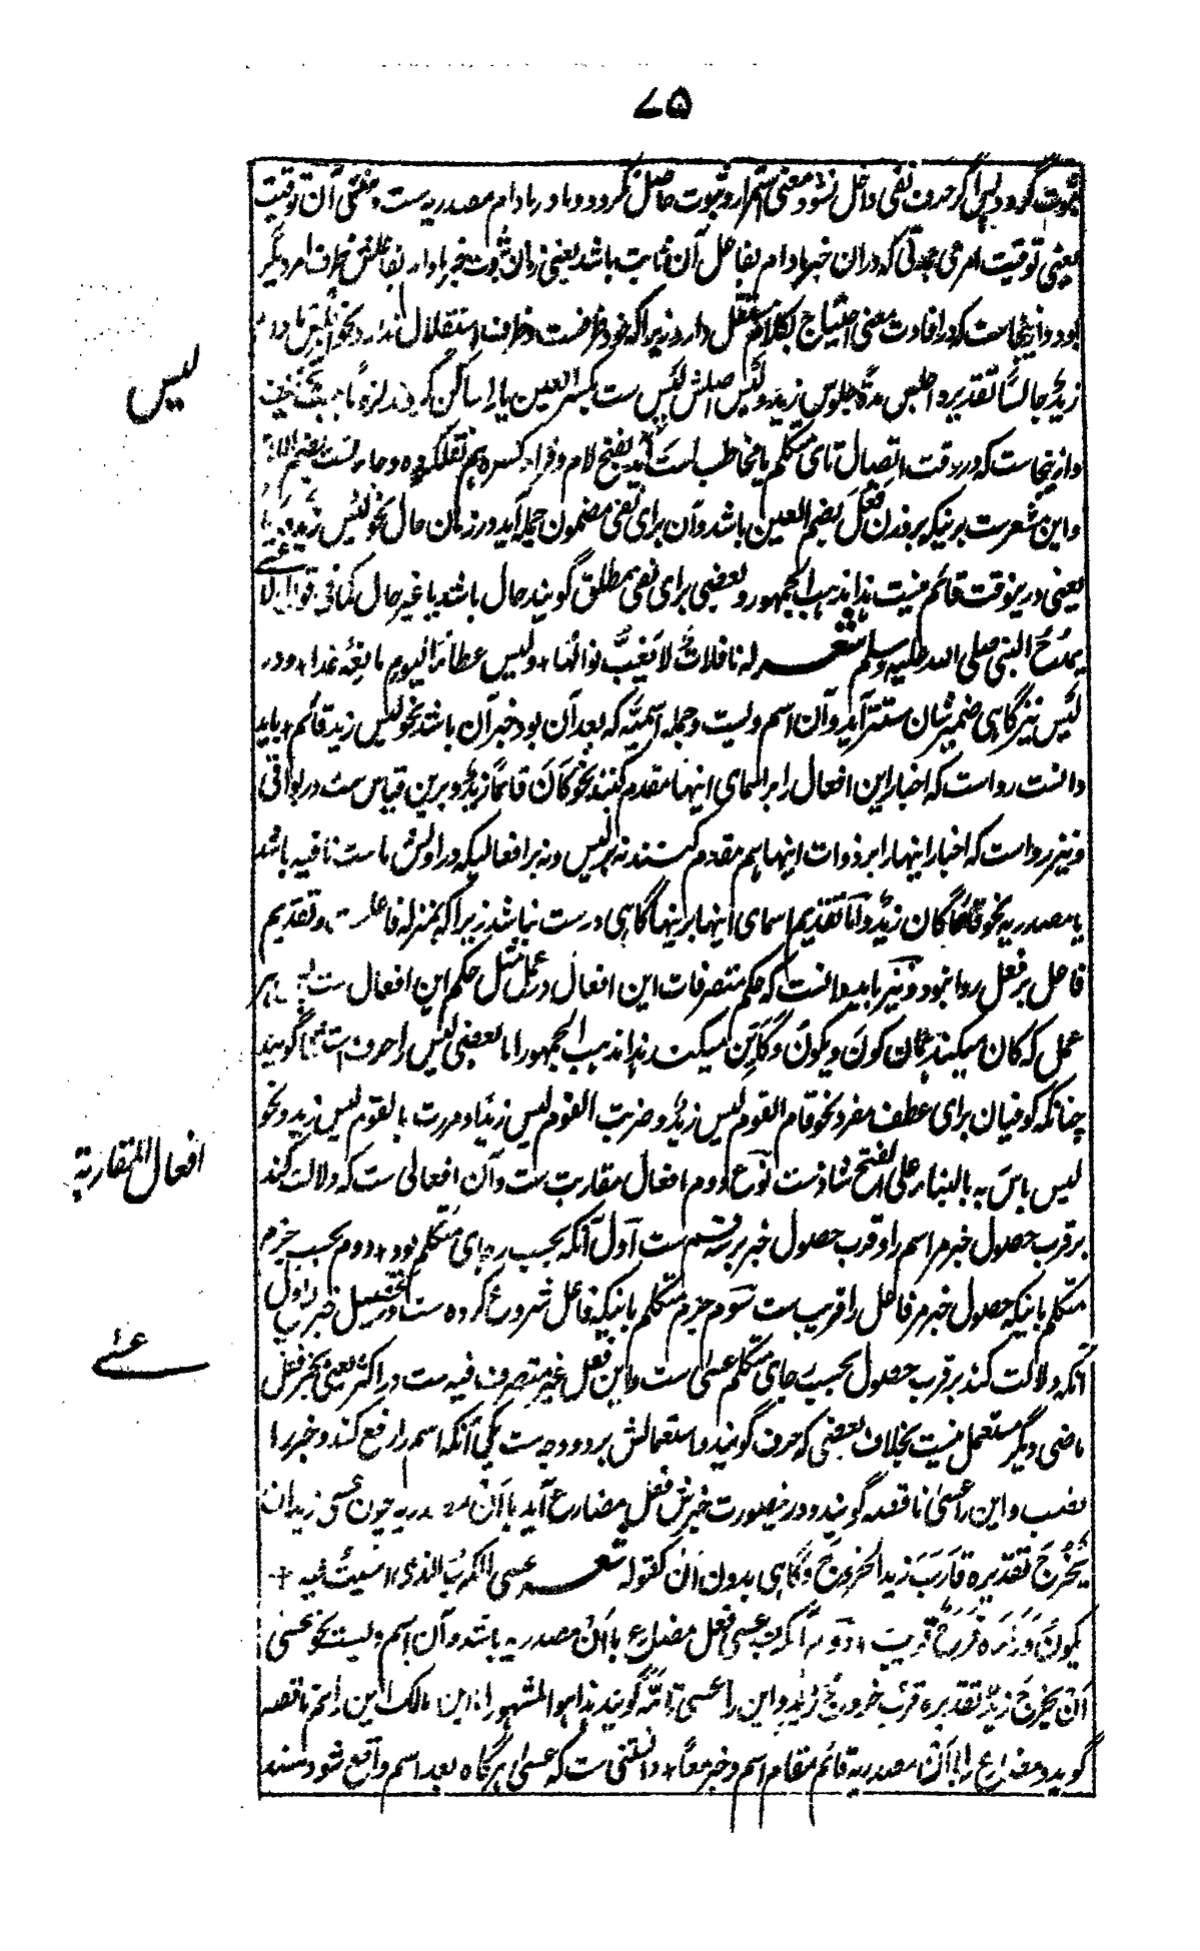 ۷۵
ثبوت گردد پس اگر حرف نفی داخل نشود معنی استمرار و ثبوت حاصل نگردد و ما در مادام مصدریه ست و معنی آن توقیت
یعنی توقیت امری بمدتی که دران خبر مادام بفاعل آن ثابت باشد یعنی زمان ثبوت خبر مادام بفاعلش ظرف امر دیگر
بود و ازینجاست که در افادت معنی احتیاج بکلام مستقل دارد زیرا که خود ظرفست و ظرف استقلال ندارد نحو اجلس مادام
زید جالسًا تقدیره اجلس مدة جلوس زید و لَیْسَ اصلش لَیِسَ ست بکسر العین یا را ساکن کردند لزومًا بجهت تخفیف
و ازینجاست که در وقت اتصال تای متکلم یا مخاطب لست آید بفتح لام و فراء کسره هم نقل کرده و جاء لُست بضم اللام
و این مشعرست برینکه بر وزن فَعُلَ بضم العین باشد و آن برای نفی مضمون جمله آید در زمان حال نحو لَیْسَ زید قائمًا
یعنی درینوقت قائم نیست هذا مذهب الجمهور و بعضی برای نفی مطلق گویند حال باشد یا غیر حال کما فی قول الاعشی
یمدح النبی صلی الله علیه وسلم شعر له نافلات لا یغبّ نوالها، ولیس عطاء الیوم مانعه غدا، و در
لَیْسَ نیز گاهی ضمیر شان مستتر آید و آن اسم ویست و جمله اسمیّه که بعد آن بود خبر آن باشد نحو لیس زید قائم، باید
دانست رواست که اخبار این افعال را بر اسمای اینها مقدم کنند نحو کَانَ قائمًا زیدٌ و برین قیاس ست در بواقی
و نیز رواست که اخبار اینها را بر ذوات اینها هم مقدم کنند نه بر لیس و نه بر افعالیکه در اولش ما ست نافیه باشد
یا مصدریه نحو قائمًا کان زیدٌ و اما تقدیم اسمای اینها برینها گاهی درست نباشد زیرا که بمنزله فاعلست و تقدیم
فاعل بر فعل روا نبود و نیز باید دانست که حکم متصرفات این افعال در عمل مثل حکم این افعال ست پس هر
عمل که کان میکند همان کونَ و یکونُ و کائِن میکنند هذا مذهب الجمهور اما بعضی لیس را حرف استثنا گویند
چنانکه کوفیان برای عطف مفرد نحو قام القوم لیس زیدٌ و ضربت القوم لیس زیدًا و مررت بالقوم لیس زید و نحو
لیس باسَ به بالبناء علی الفتح شاذست نوع دوم افعال مقاربت ست و آن افعالی ست که دلالت کند
بر قرب حصول خبر مر اسم را و قرب حصول خبر بر سه قسم ست اول آنکه بحسب رجای متکلم بود، دوم بحسب جزم
متکلم باینکه حصول خبر مر فاعل را قریب ست سوم جزم متکلم باینکه فاعل شروع کرده ست در تحصیل خبر اول
آنکه دلالت کند بر قرب حصول بحسب رجای متکلم عسی ست و این فعل غیر متصرف فیه ست در اکثر یعنی بجز فعل
ماضی دیگر مستعمل نیست بخلاف بعضی که حرف گویند و استعمالش بر دو وجه ست یکی آنکه اسم را رفع کند و خبر را
نصب و این را عسیٰ ناقصه گویند و درینصورت خبرش فعل مضارع آید با اَن مصدریه چون عسی زید ان
یَخْرُجَ تقدیره قَارَبَ زید الخروجَ و گاهی بدون اَنْ کقوله شعر عسی الکربُ الذی امسیتُ فیه +
یکونُ وَرَاءه فرَجٌ قریب، دوم آنکه مرفوع عسی فعل مضارع با اَنْ مصدریه باشد و آن اسم ویست نحو عسٰی
اَنْ یخرج زیدٌ تقدیره قرُب خروجُ زید و این را عسی تامّه گویند هذا هو المشهور اما ابن مالک این را هم ناقصه
گوید و مضارع را با اَنْ مصدریه قائم مقام اسم و خبر معًا، دانستنی ست که عسی هرگاه بعد اسم واقع شود مسند
لیس
افعال المقاربة
عسٰی